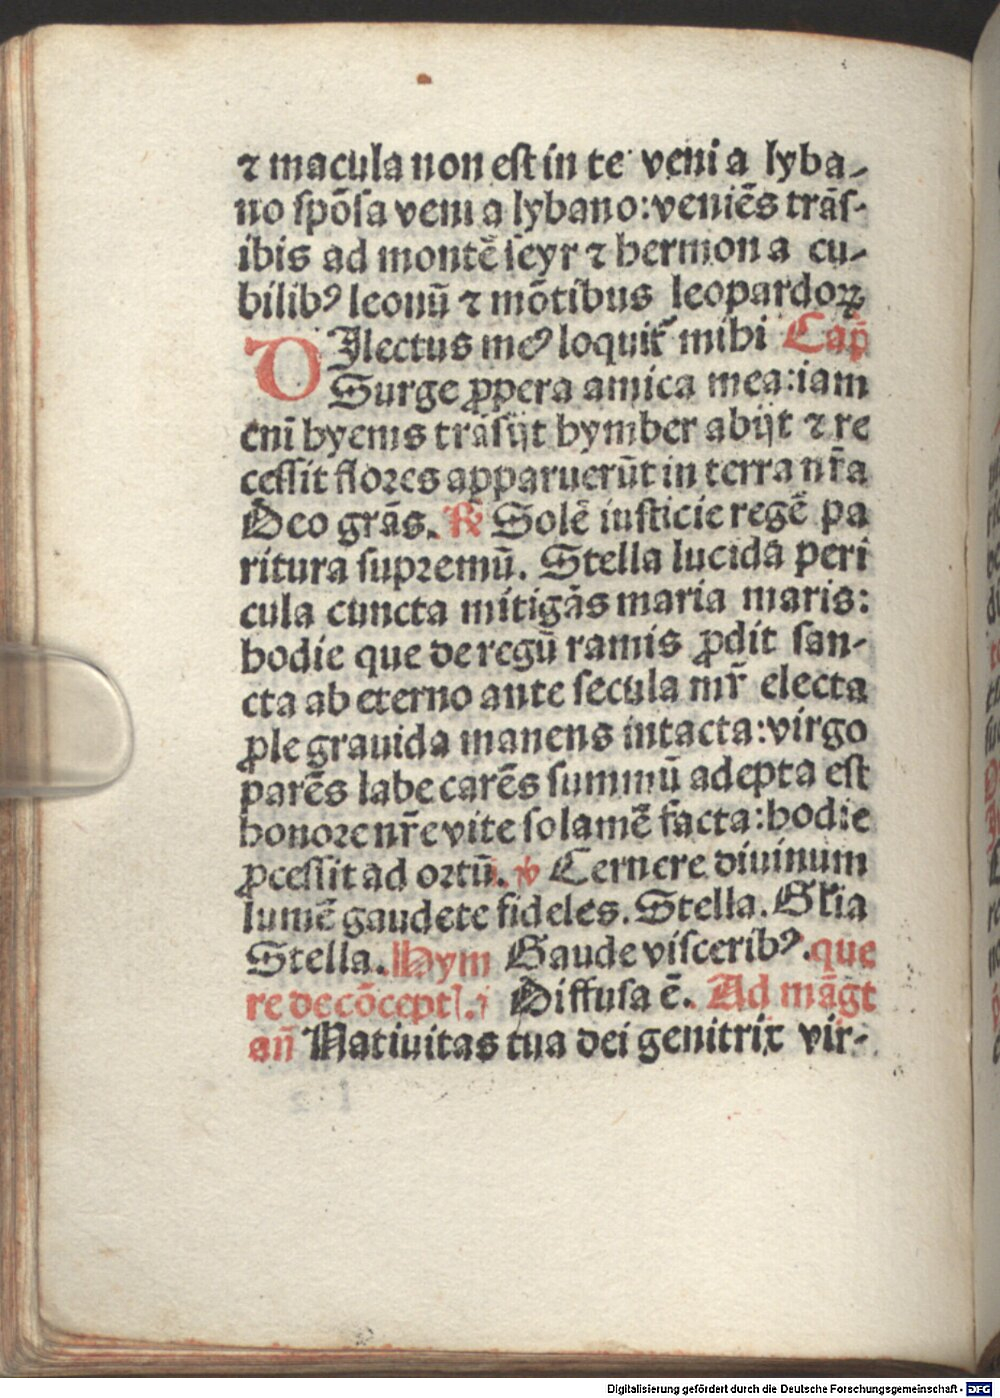 ⁊ macula non est in te veni a lyba-
no spōsa veni a lybano: veniēs trās-
ibis ad montē seyr ⁊ hermon a cu-
bilibꝰ leonū ⁊ mōtibus leopardoꝝ
DIlectus meꝰ loquit᷑ mihi Cap̄
Surge ꝓpera amica mea: iam
eni̅ hyems trāsijt hymber abijt ⁊ re
cessit flores apparuerūt in terra nr̄a
Deo grās. ℟ Solē iusticie regē pa
ritura supremū. Stella lucida peri
cula cuncta mitigās maria maris:
hodie que de regū ramis ꝓdit san-
cta ab eterno ante secula mr̄ electa
ꝓle grauida manens intacta: virgo
parēs labe carēs summū adepta est
honore nr̄e vite solamē facta: hodie
ꝓcessit ad ortū. ℣ Cernere diuinum
lumē gaudete fideles. Stella. Gl̄ia
Stella. Hym Gaude visceribꝰ. que
re de cōcept]. ℣ Diffusa ē. Ad māgt
an̄ Natiuitas tua dei genitrix vir-
Digitalisierung gefördert durch die Deutsche Forschungsgemeinschaft - DFG